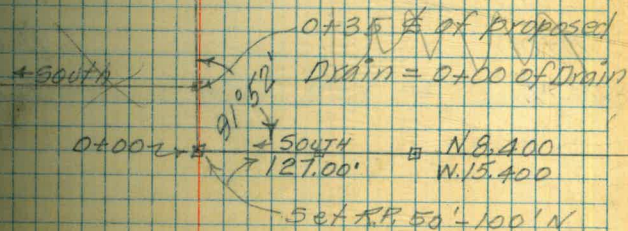 0+35 ℄ of proposed
Drain = 0+00 of Drain
← South
91°52'
0+00
← SOUTH
127.00'
N 8,400
W.15,400
Set R.P. 50'-100' N